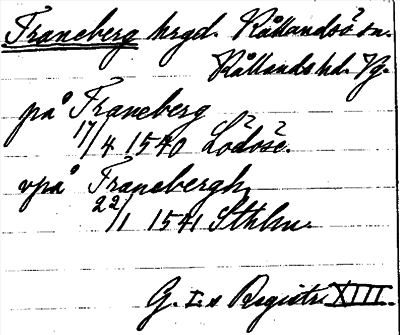 Traneberg hrgd. Kållandsö sn.
Kållands hd. Vg.
på Traneberg
17/4 1540 Lödöse.
vpå Tranebergh
22/1 1541 Sthlm.
G. I:s Registr. XIII.